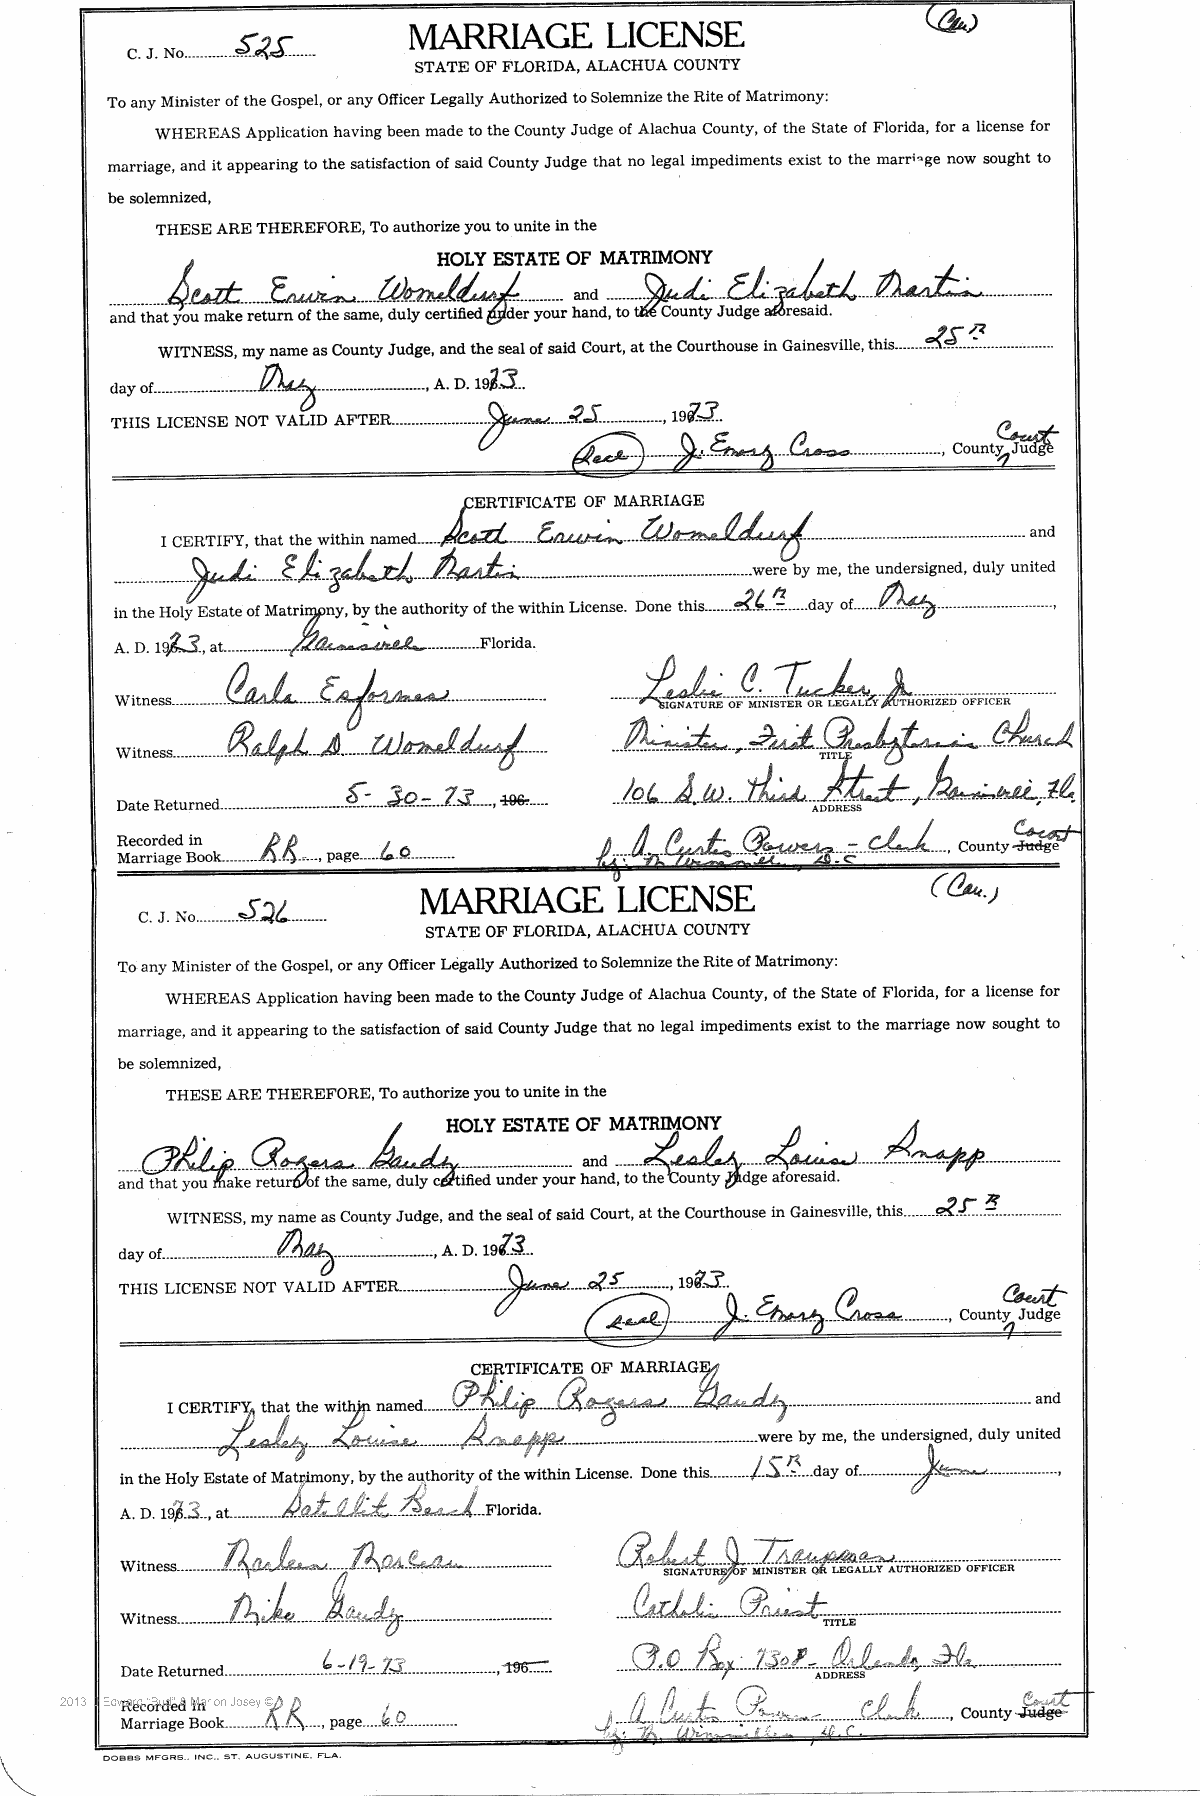 (Cau.)
C. J. No. 525 MARRIAGE LICENSE
STATE OF FLORIDA, ALACHUA COUNTY
To any Minister of the Gospel, or any Officer Legally Authorized to Solemnize the Rite of Matrimony:
WHEREAS Application having been made to the County Judge of Alachua County, of the State of Florida, for a license for
marriage, and it appearing to the satisfaction of said County Judge that no legal impediments exist to the marriage now sought to
be solemnized,
THESE ARE THEREFORE, To authorize you to unite in the
HOLY ESTATE OF MATRIMONY
Scott Erwin Womeldurf and Judi Elizabeth Martin
and that you make return of the same, duly certified under your hand, to the County Judge aforesaid.
WITNESS, my name as County Judge, and the seal of said Court, at the Courthouse in Gainesville, this 25th
day of May, A. D. 1973
THIS LICENSE NOT VALID AFTER June 25, 1973
(Seal) J. Emory Cross, County Court Judge
CERTIFICATE OF MARRIAGE
I CERTIFY, that the within named Scott Erwin Womeldurf and
Judi Elizabeth Martin were by me, the undersigned, duly united
in the Holy Estate of Matrimony, by the authority of the within License. Done this 26th day of May,
A. D. 1973, at Gainesville Florida.
Witness Carla Esformes Leslie C. Tucker, Jr
SIGNATURE OF MINISTER OR LEGALLY AUTHORIZED OFFICER
Witness Ralph D. Womeldurf Minister, First Presbyterian Church
TITLE
Date Returned 5-30-73, 196 106 S.W. Third Street, Gainesville, Fla.
ADDRESS
Recorded in
Marriage Book RR, page 60 A. Curtis Powers - Clerk, County Court Judge
by: M. D.C.
(Cau.)
C. J. No. 526 MARRIAGE LICENSE
STATE OF FLORIDA, ALACHUA COUNTY
To any Minister of the Gospel, or any Officer Legally Authorized to Solemnize the Rite of Matrimony:
WHEREAS Application having been made to the County Judge of Alachua County, of the State of Florida, for a license for
marriage, and it appearing to the satisfaction of said County Judge that no legal impediments exist to the marriage now sought to
be solemnized,
THESE ARE THEREFORE, To authorize you to unite in the
HOLY ESTATE OF MATRIMONY
Philip Rogers Gaudy and Lesley Louise Knapp
and that you make return of the same, duly certified under your hand, to the County Judge aforesaid.
WITNESS, my name as County Judge, and the seal of said Court, at the Courthouse in Gainesville, this 25th
day of May, A. D. 1973
THIS LICENSE NOT VALID AFTER June 25, 1973
(Seal) J. Emory Cross, County Court Judge
CERTIFICATE OF MARRIAGE
I CERTIFY, that the within named Philip Rogers Gaudy and
Lesley Louise Knapp were by me, the undersigned, duly united
in the Holy Estate of Matrimony, by the authority of the within License. Done this 15th day of June,
A. D. 1973, at Satellite Beach Florida.
Witness Marleen Marceau Robert J Traupman
SIGNATURE OF MINISTER OR LEGALLY AUTHORIZED OFFICER
Witness Mike Gaudy Catholic Priest
TITLE
Date Returned 6-19-73, 196 P.O Box 7308- Orlando, Fla
ADDRESS
2013 Edward "Bud" & Marion Josey ©
Recorded in
Marriage Book RR, page 60 A Curtis Powers - Clerk, County Court Judge
by: M. D.C.
DOBBS MFGRS., INC., ST. AUGUSTINE, FLA.